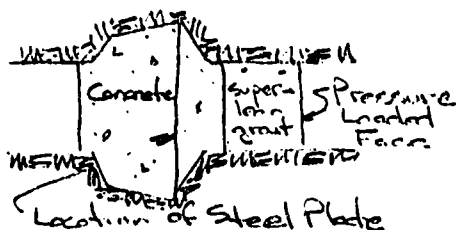 Concrete
super-
lean
grout
Pressure
Loaded
Face
Location of Steel Plate